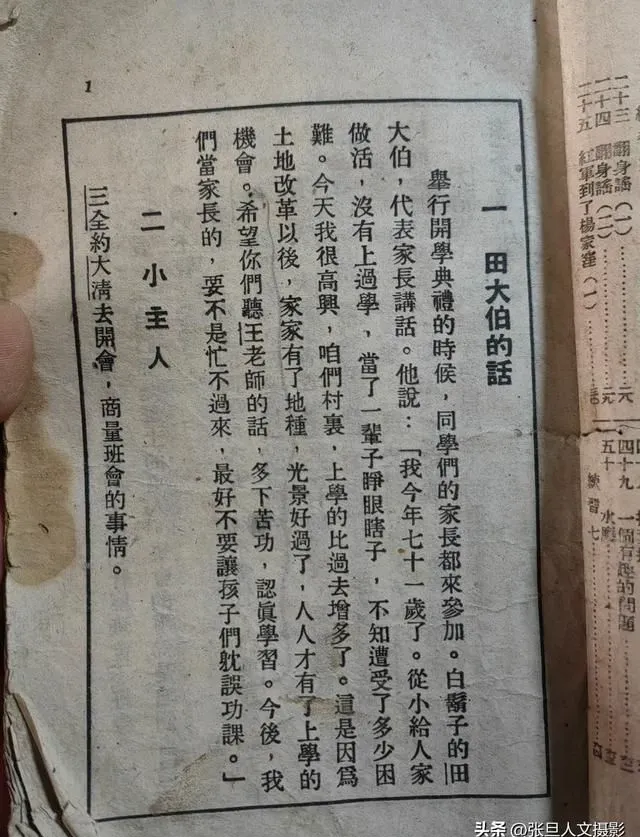 二十三 翻身謠（一）
二十四 翻身謠（二）
二十五 紅軍到了楊家窪（一）
四十九 一個有趣的問題
五十
練習七
1
一 田大伯的話
舉行開學典禮的時候，同學們的家長都來參加。白鬍子的田
大伯，代表家長講話。他說：「我今年七十一歲了。從小給人家
做活，沒有上過學，當了一輩子睜眼瞎子，不知遭受了多少困
難。今天我很高興，咱們村裏，上學的比過去增多了。這是因爲
土地改革以後，家家有了地種，光景好過了，人人才有了上學的
機會。希望你們聽王老師的話，多下苦功，認眞學習。今後，我
們當家長的，要不是忙不過來，最好不要讓孩子們躭誤功課。」
二 小主人
三全約大清去開會，商量班會的事情。
头条 @张旦人文摄影